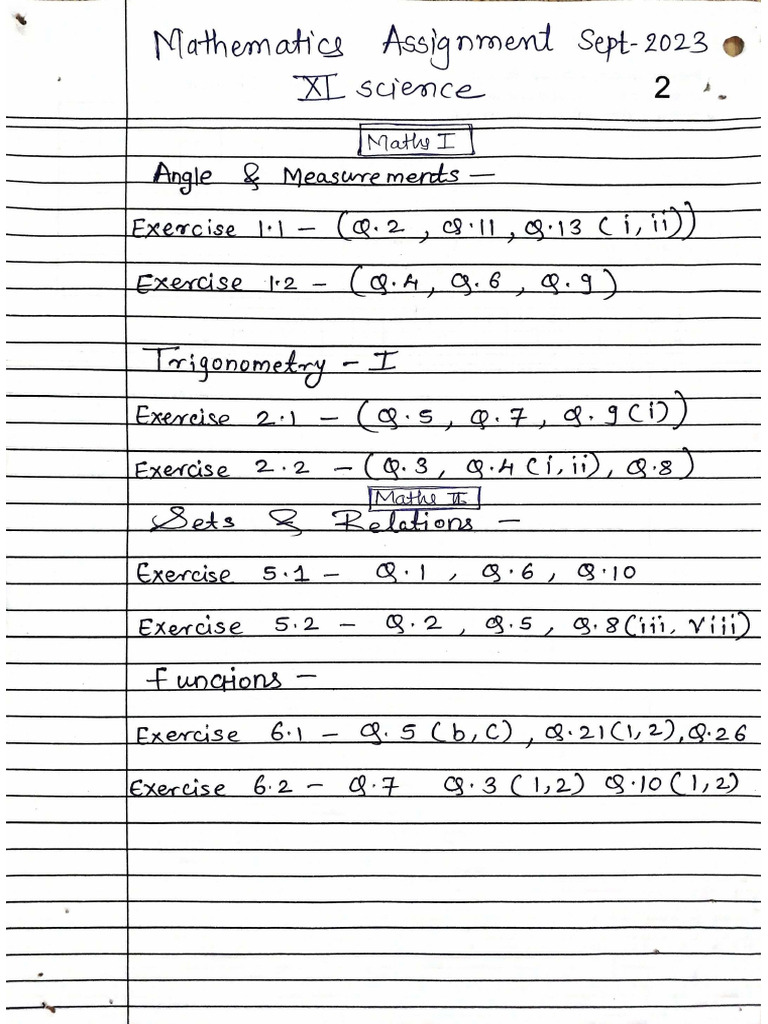 Mathematics Assignment Sept-2023
XI science 2
Maths I
Angle & Measurements -
Exercise 1.1 - (Q.2, Q.11, Q.13 (i, ii))
Exercise 1.2 - (Q.4, Q.6, Q.9)
Trigonometry - I
Exercise 2.1 - (Q.5, Q.7, Q.9(i))
Exercise 2.2 - (Q.3, Q.4(i, ii), Q.8)
Maths II
Sets & Relations -
Exercise 5.1 - Q.1, Q.6, Q.10
Exercise 5.2 - Q.2, Q.5, Q.8(iii, viii)
Functions -
Exercise 6.1 - Q.5 (b, c), Q.21(1,2), Q.26
Exercise 6.2 - Q.7 Q.3 (1,2) Q.10(1,2)